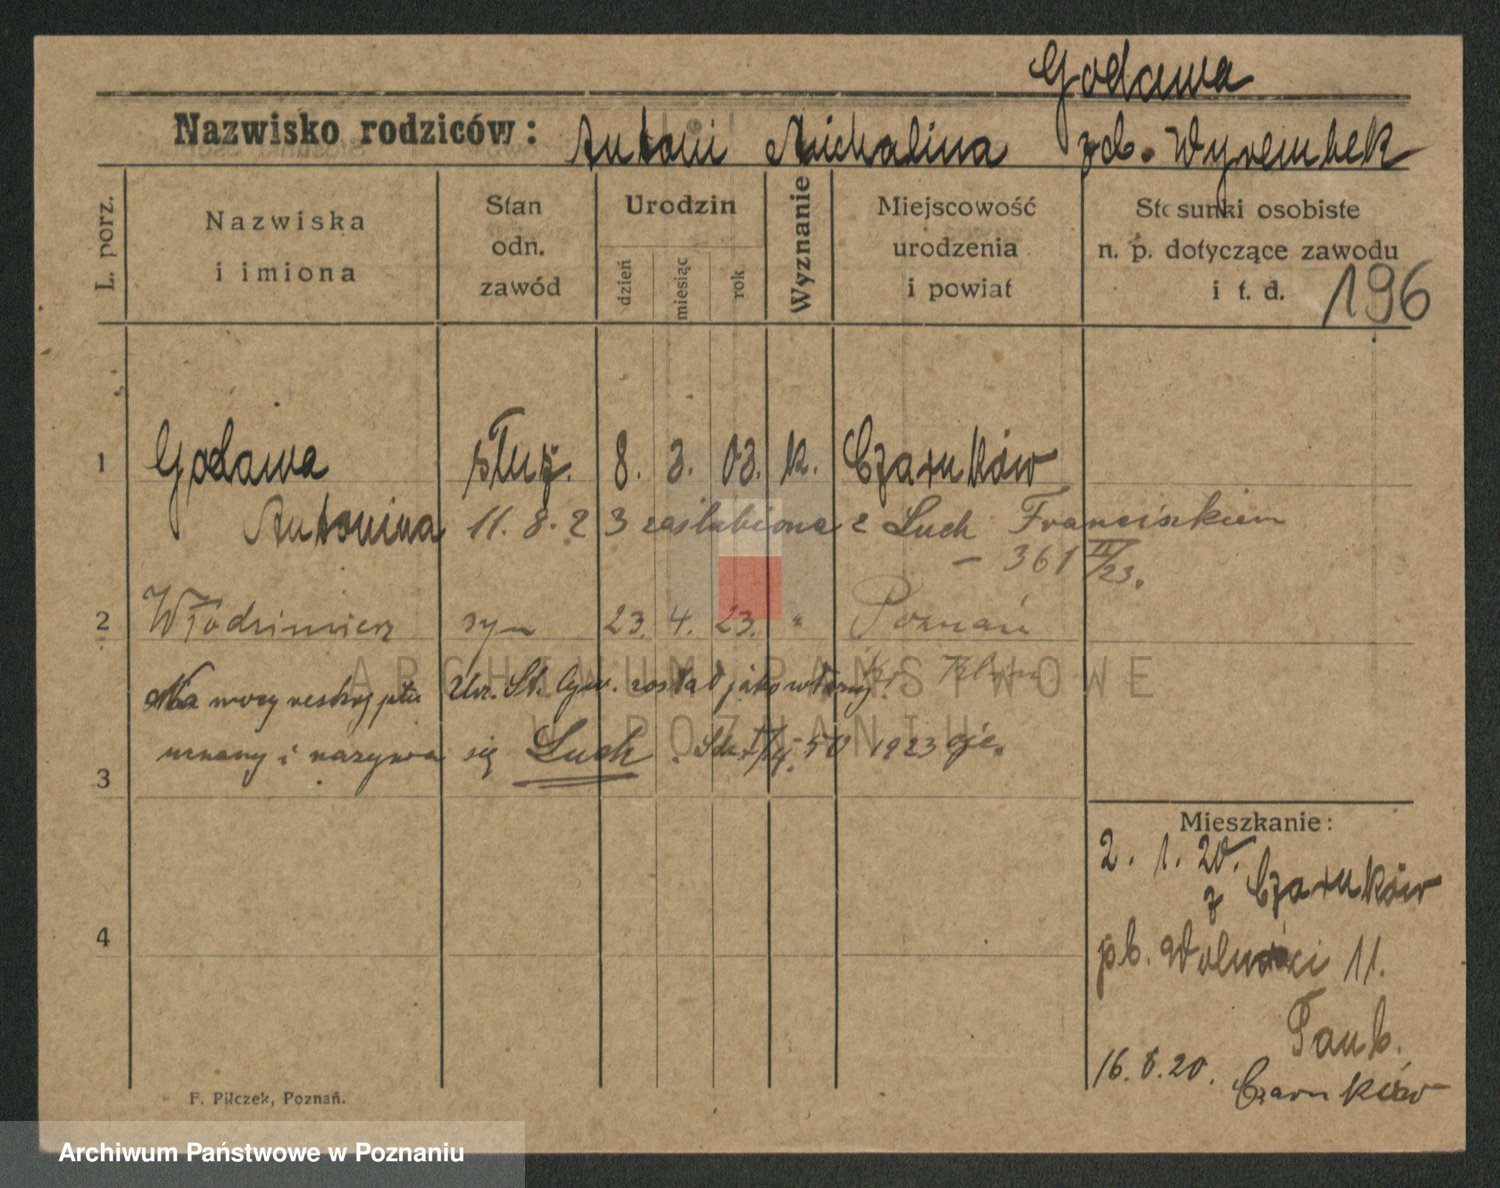 Godawa
Nazwisko rodziców: Antoni Michalina zd. Wyrembek
L. porz.
Nazwiska i imiona
Stan odn. zawód
Urodzin
dzień
miesiąc
rok
Wyznanie
Miejscowość urodzenia i powiat
Stosunki osobiste n. p. dotyczące zawodu i t. d.
196
1 Godawa służ. 8. 3. 03. k. Czarnków
Antonina 11. 8. 23 zaślubiona z Luch Franciszkiem
– 361 /23.
2 Włodzimierz syn 23. 4. 23. " Poznań
Na mocy Urz. St. Cyw. został jako własny
uznany i nazywa się Luch. 50 1923
3
Mieszkanie:
2. 1. 20.
z Czarnków
pl. Wolności 11.
4
Taub.
16. 8. 20. Czarnków
F. Pilczek, Poznań.
ARCHIWUM PAŃSTWOWE
W POZNANIU
Archiwum Państwowe w Poznaniu